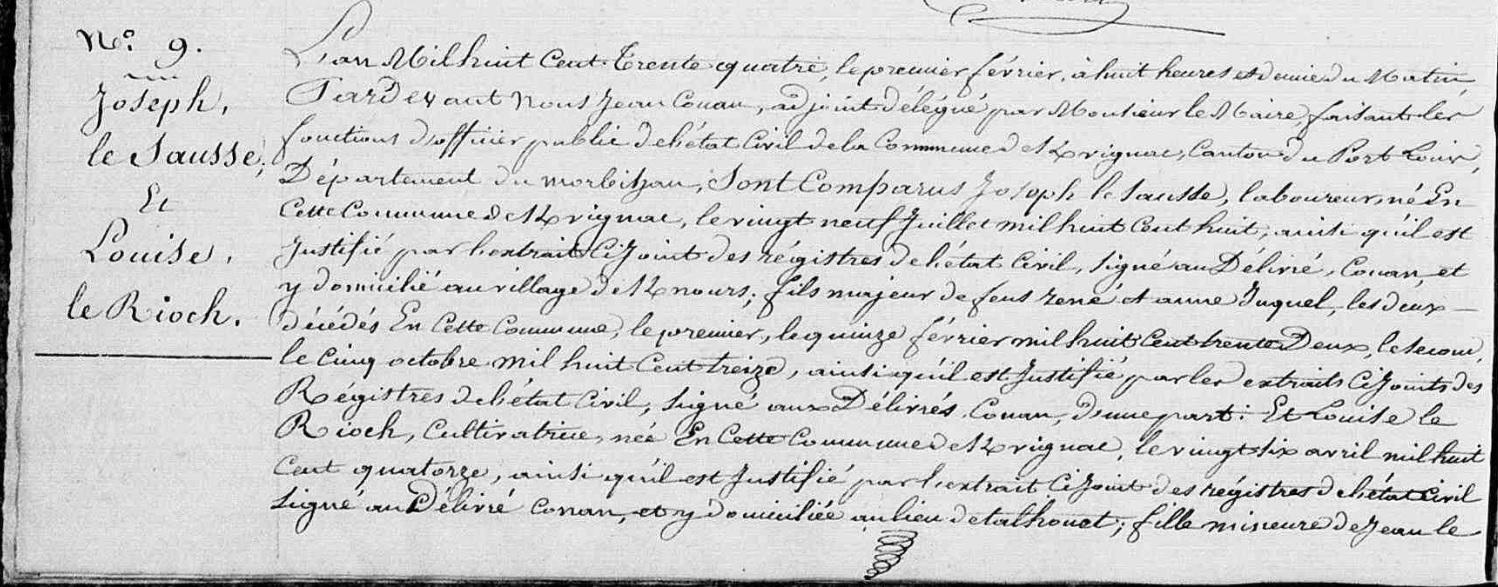 N.° 9.
Joseph,
le Sausse,
Et
Louise,
le Rioch.
L'an Mil huit Cent Trente quatre, le premier février, à huit heures et demie du Matin,
Pardevant Nous Jean Conan, adjoint délégué par Monsieur le Maire, faisant les
fonctions d'officier public de l'état Civil de la Commune de Krvignac, Canton du Port Louis,
Département du morbihan, Sont Comparus Joseph le Sausse, laboureur, né En
Cette Commune de Krvignac, le vingt neuf Juillet mil huit Cent huit, ainsi qu'il est
Justifié par l'extrait Ci Joint des régistres de l'état Civil, signé au Délivré, Conan et
y domicilié au village de Knours; fils majeur de feus rené et anne Juquel, les deux
décédés En Cette Commune, le premier, le quinze février mil huit Cent trente Deux, le second,
le Cinq octobre mil huit Cent treize, ainsi qu'il est Justifié par les extraits Ci Joints des
Régistres de l'état Civil, signé aux Délivrés Conan, d'une part: Et Louise le
Rioch, Cultivatrice, née En Cette Commune de Krvignac, le vingt six avril mil huit
Cent quatorze, ainsi qu'il est Justifié par l'extrait Ci Joint des régistres de l'état Civil
signé au Délivré Conan, et y domiciliée au lieu de talhouet; fille mineure de Jean le